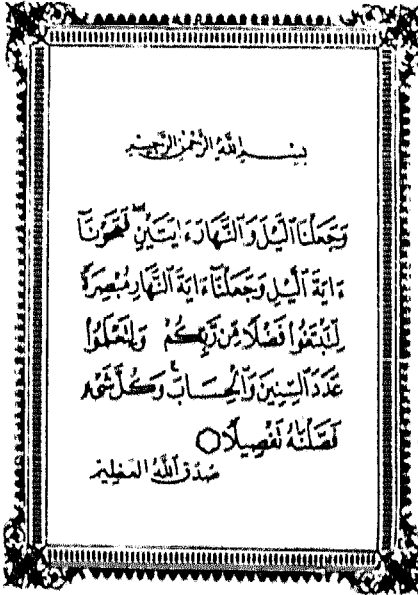 بسم الله الرحمن الرحيم
وَجَعَلْنَا ٱلَّيْلَ وَٱلنَّهَارَ ءَايَتَيْنِ ۖ فَمَحَوْنَآ
ءَايَةَ ٱلَّيْلِ وَجَعَلْنَآ ءَايَةَ ٱلنَّهَارِ مُبْصِرَةً
لِّتَبْتَغُوا۟ فَضْلًا مِّن رَّبِّكُمْ وَلِتَعْلَمُوا۟
عَدَدَ ٱلسِّنِينَ وَٱلْحِسَابَ ۚ وَكُلَّ شَىْءٍ
فَصَّلْنَٰهُ تَفْصِيلًا
صدق الله العظيم